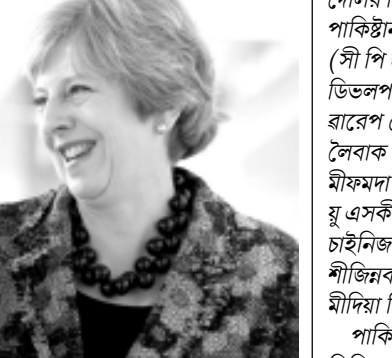 পাকিস্তান
(সী পি
ডিভলপ
ৱারেপ
লৈবাক
মীফমদা
য়ু এসকী
চাইনিজ
শীজিন্নব
মীদিয়া
পাকি